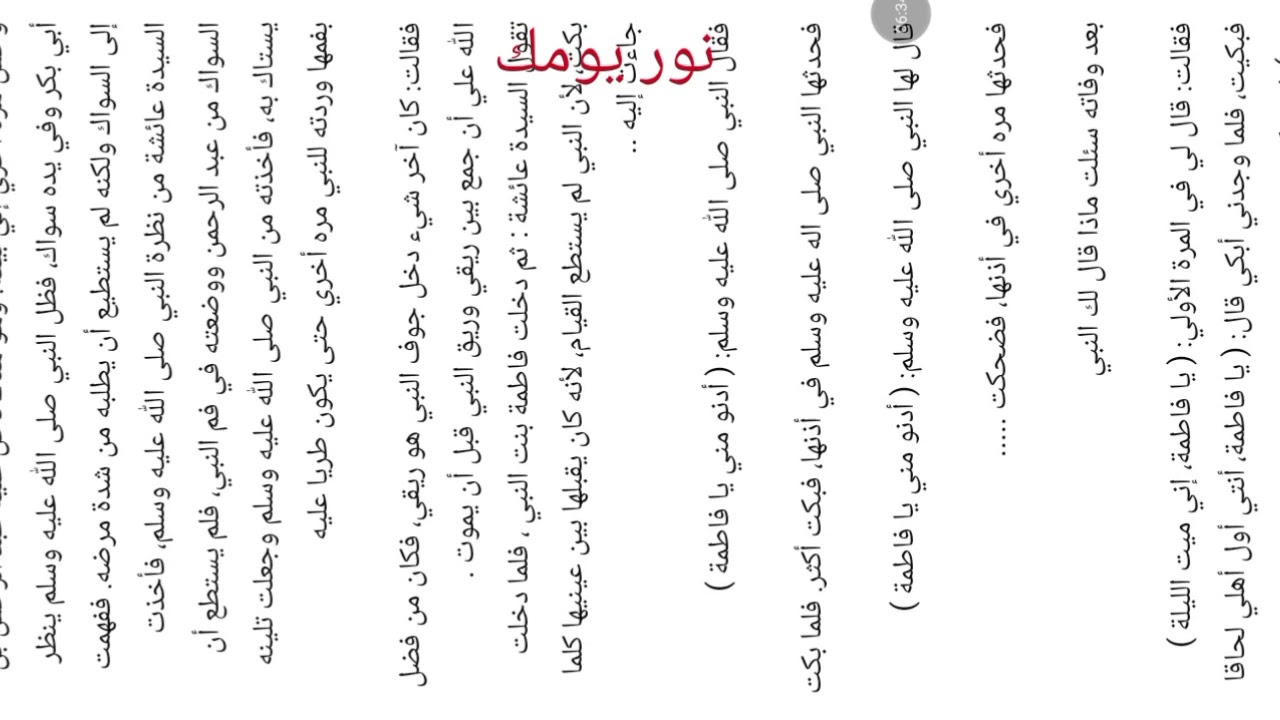 أبي بكر وفي يده سواك، فظل النبي صلى الله عليه وسلم ينظر
إلى السواك ولكنه لم يستطيع أن يطلبه من شدة مرضه. ففهمت
السيدة عائشة من نظرة النبي صلى الله عليه وسلم، فأخذت
السواك من عبد الرحمن ووضعته في فم النبي، فلم يستطع أن
يستاك به، فأخذته من النبي صلى الله عليه وسلم وجعلت تلينه
بفمها وردته للنبي مره أخري حتى يكون طريا عليه
فقالت: كان آخر شيء دخل جوف النبي هو ريقي، فكان من فضل
الله علي أن جمع بين ريقي وريق النبي قبل أن يموت .
تقول السيدة عائشة : ثم دخلت فاطمة بنت النبي ، فلما دخلت
بكت، لأن النبي لم يستطع القيام، لأنه كان يقبلها بين عينيها كلما
جاءت إليه ..
نور يومك
فقال النبي صلى الله عليه وسلم: ( أدنو مني يا فاطمة )
فحدثها النبي صلى اله عليه وسلم في أذنها، فبكت أكثر. فلما بكت
قال لها النبي صلى الله عليه وسلم: ( أدنو مني يا فاطمة )
فحدثها مره أخري في أذنها، فضحكت .....
بعد وفاته سئلت ماذا قال لك النبي
فقالت: قال لي في المرة الأولي: ( يا فاطمة، إني ميت الليلة )
فبكيت، فلما وجدني أبكي قال: ( يا فاطمة، أنتي أول أهلي لحاقا